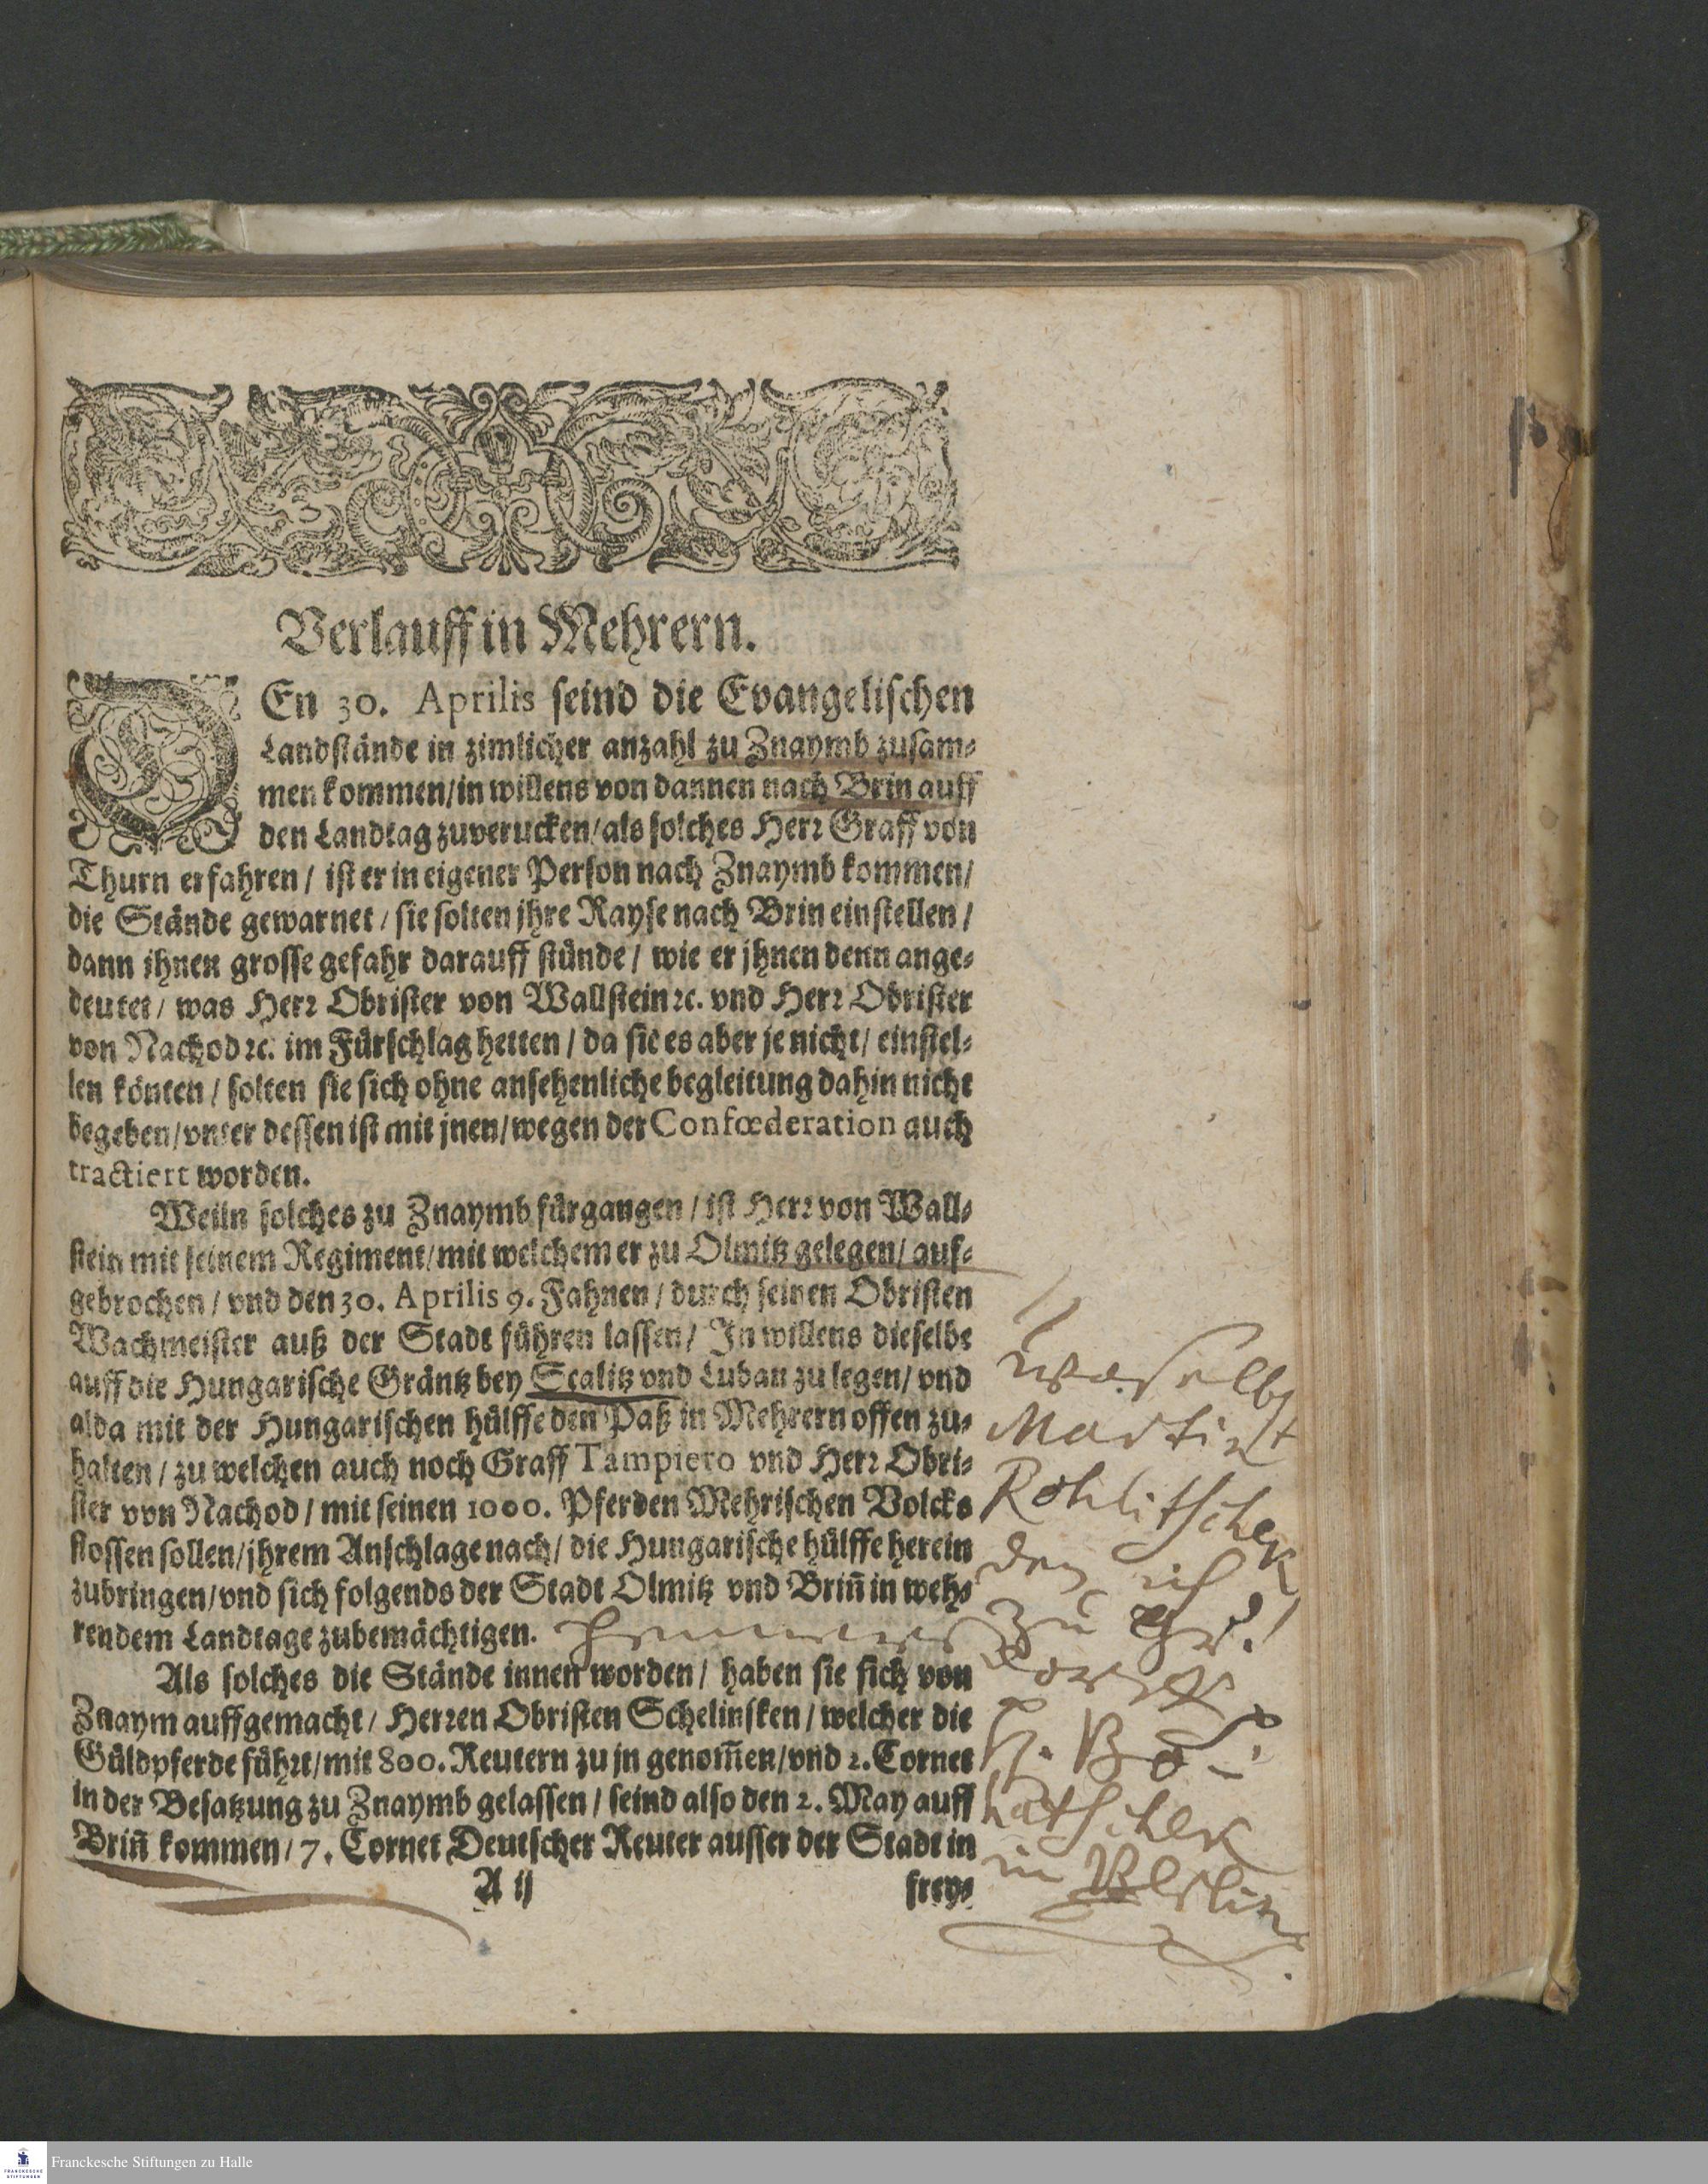 Verlauff in Mehrern.
DEn 30. Aprilis seind die Evangelischen
Landstände in zimlicher anzahl zu Znaymb zusam⸗
men kommen/in willens von dannen nach Brin auff
den Landtag zuverucken/als solches Herr Graff von
Thurn erfahren/ ist er in eigener Person nach Znaymb kommen/
die Stände gewarnet/ sie solten jhre Rayse nach Brin einstellen/
dann ihnen grosse gefahr darauff stünde/ wie er jhnen denn ange⸗
deutet/ was Herr Obrister von Wallstein ꝛc. vnd Herr Obrister
von Nachod ꝛc. im Fürschlag hetten/ da sie es aber je nicht/ einstel⸗
len könten/ solten sie sich ohne ansehenliche begleitung dahin nicht
begeben/vnter dessen ist mit jnen/wegen der Confœderation auch
tractiert worden.
Weiln solches zu Znaymb fürgangen/ ist Herr von Wall⸗
stein mit seinem Regiment/mit welchem er zu Olmitz gelegen/ auf⸗
gebrochen/ vnd den 30. Aprilis 9. Fahnen/ durch seinen Obristen
Wachmeister auß der Stadt führen lassen/ In willens dieselbe
auff die Hungarische Gräntz bey Scalitz vnd Ludan zu legen/ vnd
alda mit der Hungarischen hülffe den Paß in Mehrern offen zu⸗
halten/ zu welchen auch noch Graff Tampiero vnd Herr Obri⸗
ster von Nachod/ mit seinen 1000. Pferden Mehrischen Volcks
stossen sollen/jhrem Anschlage nach/ die Hungarische hülffe herein
zubringen/vnd sich folgends der Stadt Olmitz vnd Briñ in weh⸗
rendem Landtage zubemächtigen.
Als solches die Stände innen worden/ haben sie sich von
Znaym auffgemacht/ Herren Obristen Schelinsken/ welcher die
Güldpferde führt/mit 800. Reutern zu jn genom̃en/vnd 2. Cornet
in der Besatzung zu Znaymb gelassen/ seind also den 2. May auff
Briñ kommen/ 7. Cornet Deutscher Reuter ausser der Stadt in
A ij
frey⸗
woselbst
Martin
Rohlitschek
den ich
zu
in Berlin
Franckesche Stiftungen zu Halle